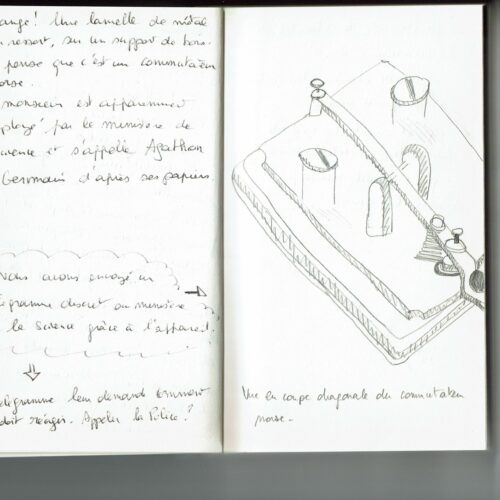 ange! Une lamelle de métal
ressort, sur un support de bois.
pense que c'est un commutateur
morse.
monsieur est apparemment
ployé par le ministère de
science et s'appelle Agathon
Germain d'après ses papiers.
Nous avons envoyé un
égramme discret au ministère
de la Science grâce à l'appareil.
élégramme leur demande comment
doit réagir. Appeler la Police?
Vue en coupe diagonale du commutateur
morse.